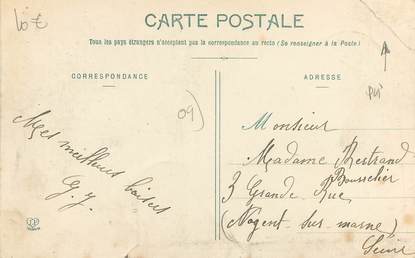 CARTE POSTALE
Tous les pays étrangers n'acceptent pas la correspondance au recto (Se renseigner à la Poste)
CORRESPONDANCE
ADRESSE
09)
Mes meilleurs baisers
G. J.
Monsieur
Madame Bertrand
Bousselier
3 Grande Rue
(Nogent-sur-marne)
Seine